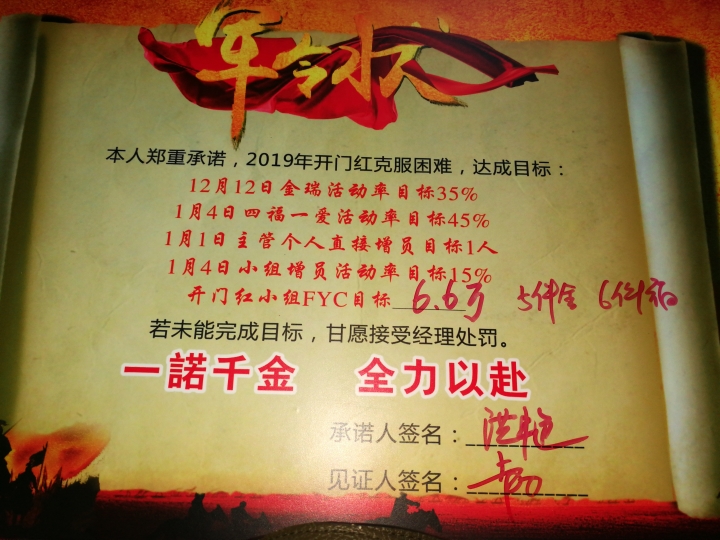 军令状
本人郑重承诺，2019年开门红克服困难，达成目标：
12月12日金瑞活动率目标35%
1月4日四福一爱活动率目标45%
1月1日主管个人直接增员目标1人
1月4日小组增员活动率目标15%
开门红小组FYC目标 6.6万 5件金 6件福
若未能完成目标，甘愿接受经理处罚。
一諾千金 全力以赴
承诺人签名：
见证人签名：